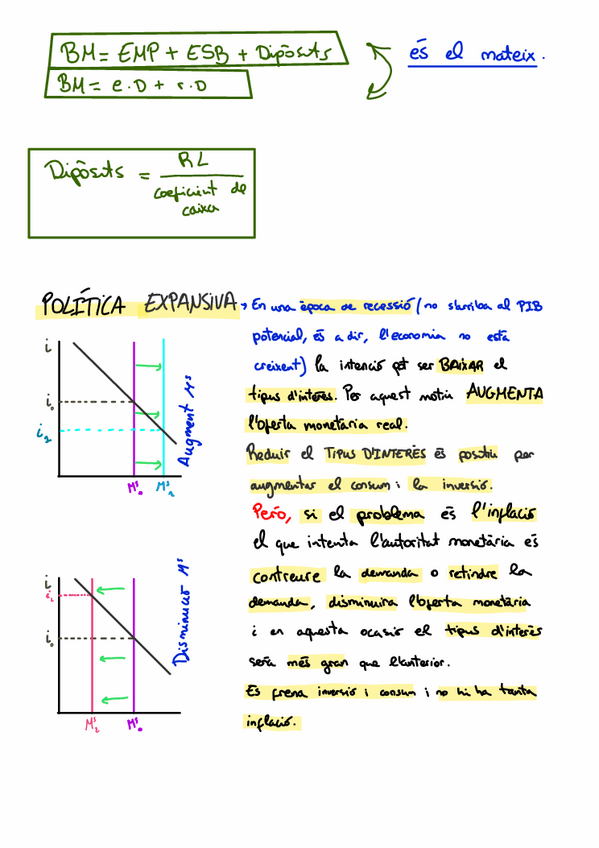 BM = EMP + ESB + Dipòsits
és el mateix.
BM = e.D + r.D
Dipòsits = RL / coeficient de caixa
POLÍTICA EXPANSIVA → En una època de recessió (no s'arriba al PIB
potencial, és a dir, l'economia no està
creixent) la intenció pot ser BAIXAR el
tipus d'interés. Per aquest motiu AUGMENTA
l'oferta monetària real.
Reduir el TIPUS D'INTERÈS és positiu per
augmentar el consum i la inversió.
Però, si el problema és l'inflació
el que intenta l'autoritat monetària és
contreure la demanda o retindre la
demanda, disminuirà l'oferta monetària
i en aquesta ocasió el tipus d'interès
serà més gran que l'anterior.
Es frena inversió i consum i no hi ha tanta
inflació.
i
i₀
i₂
M₀ˢ
M₂ˢ
Augment Mˢ
i
i₂
i₀
M₂ˢ
M₀ˢ
Disminució Mˢ